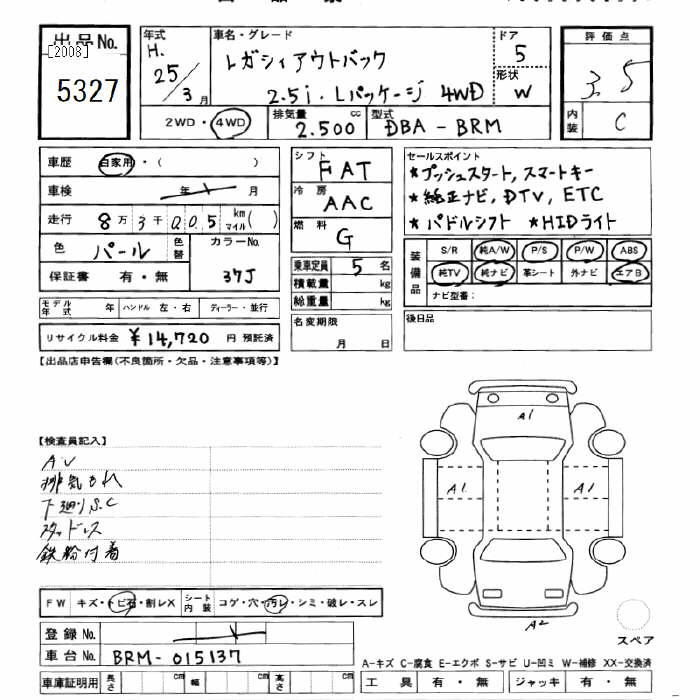 出品No.
[2008]
5327
年式
H.
25/3月
車名・グレード
レガシィアウトバック
2.5i. Lパッケージ 4WD
ドア
5
形状
W
2WD・4WD
排気量
2.500 cc
型式
DBA-BRM
評価点
3.5
内装
C
車歴 自家用・( )
車検 年 月
走行 8万3千005 km マイル( )
色 パール 色替 カラーNo. 37J
保証書 有・無
モデル年式 年 ハンドル 左・右 ディーラー・並行
リサイクル料金 ¥14,720 円 預託済
シフト FAT
冷房 AAC
燃料 G
乗車定員 5 名
積載量 kg
総重量 kg
名変期限
月 日
セールスポイント
★プッシュスタート,スマートキー
★純正ナビ, DTV, ETC
★パドルシフト ★HIDライト
装備品
S/R 純A/W P/S P/W ABS
純TV 純ナビ 革シート 外ナビ エアB
ナビ型番:
後日品
【出品店申告欄(不良箇所・欠品・注意事項等)】
【検査員記入】
AU
排気もれ
下廻りS.C
スタッドレス
鉄粉付着
A1
A1
A1
A2
スペア
FW キズ・トビ石・割レX シート内装 コゲ・穴・汚レ・シミ・破レ・スレ
登録No.
車台No. BRM-015137
車庫証明用 長さ cm 幅 cm 高さ cm
A-キズ C-腐食 E-エクボ S-サビ U-凹ミ W-補修 XX-交換済
工具 有・無 ジャッキ 有・無